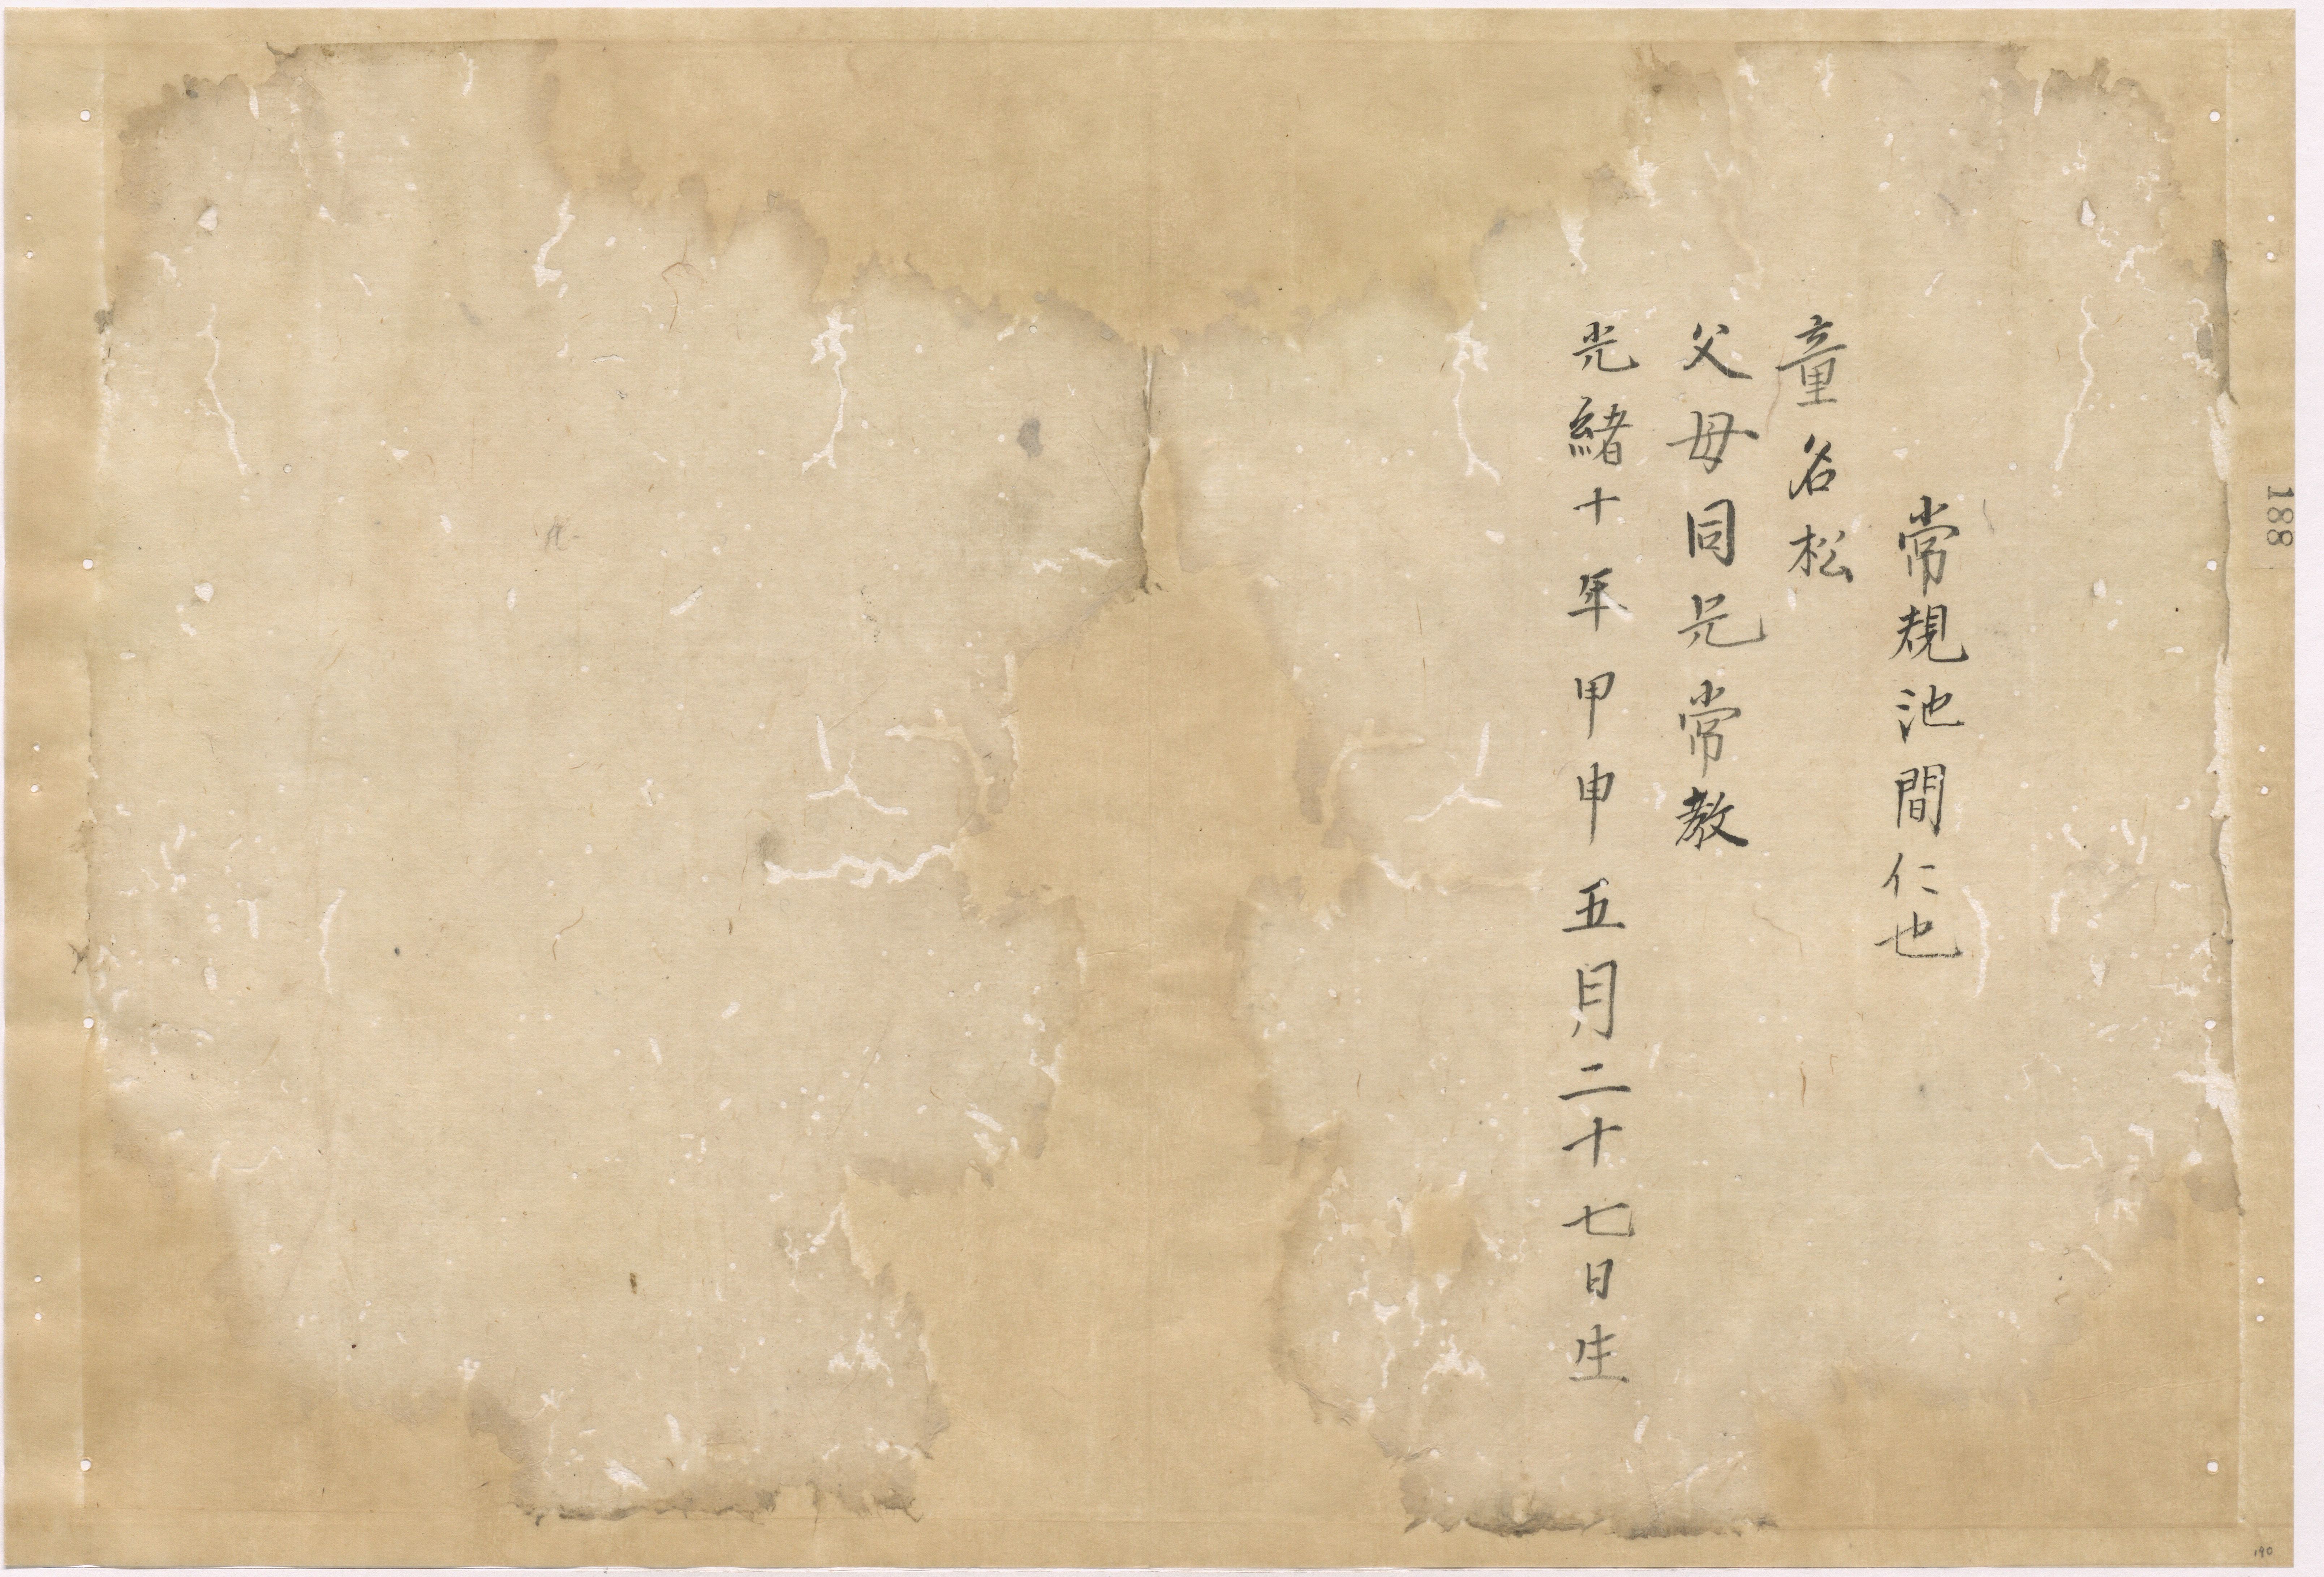 常規池間仁也
童名松
父母同兄常教
光緒十年甲申五月二十七日生
188
190